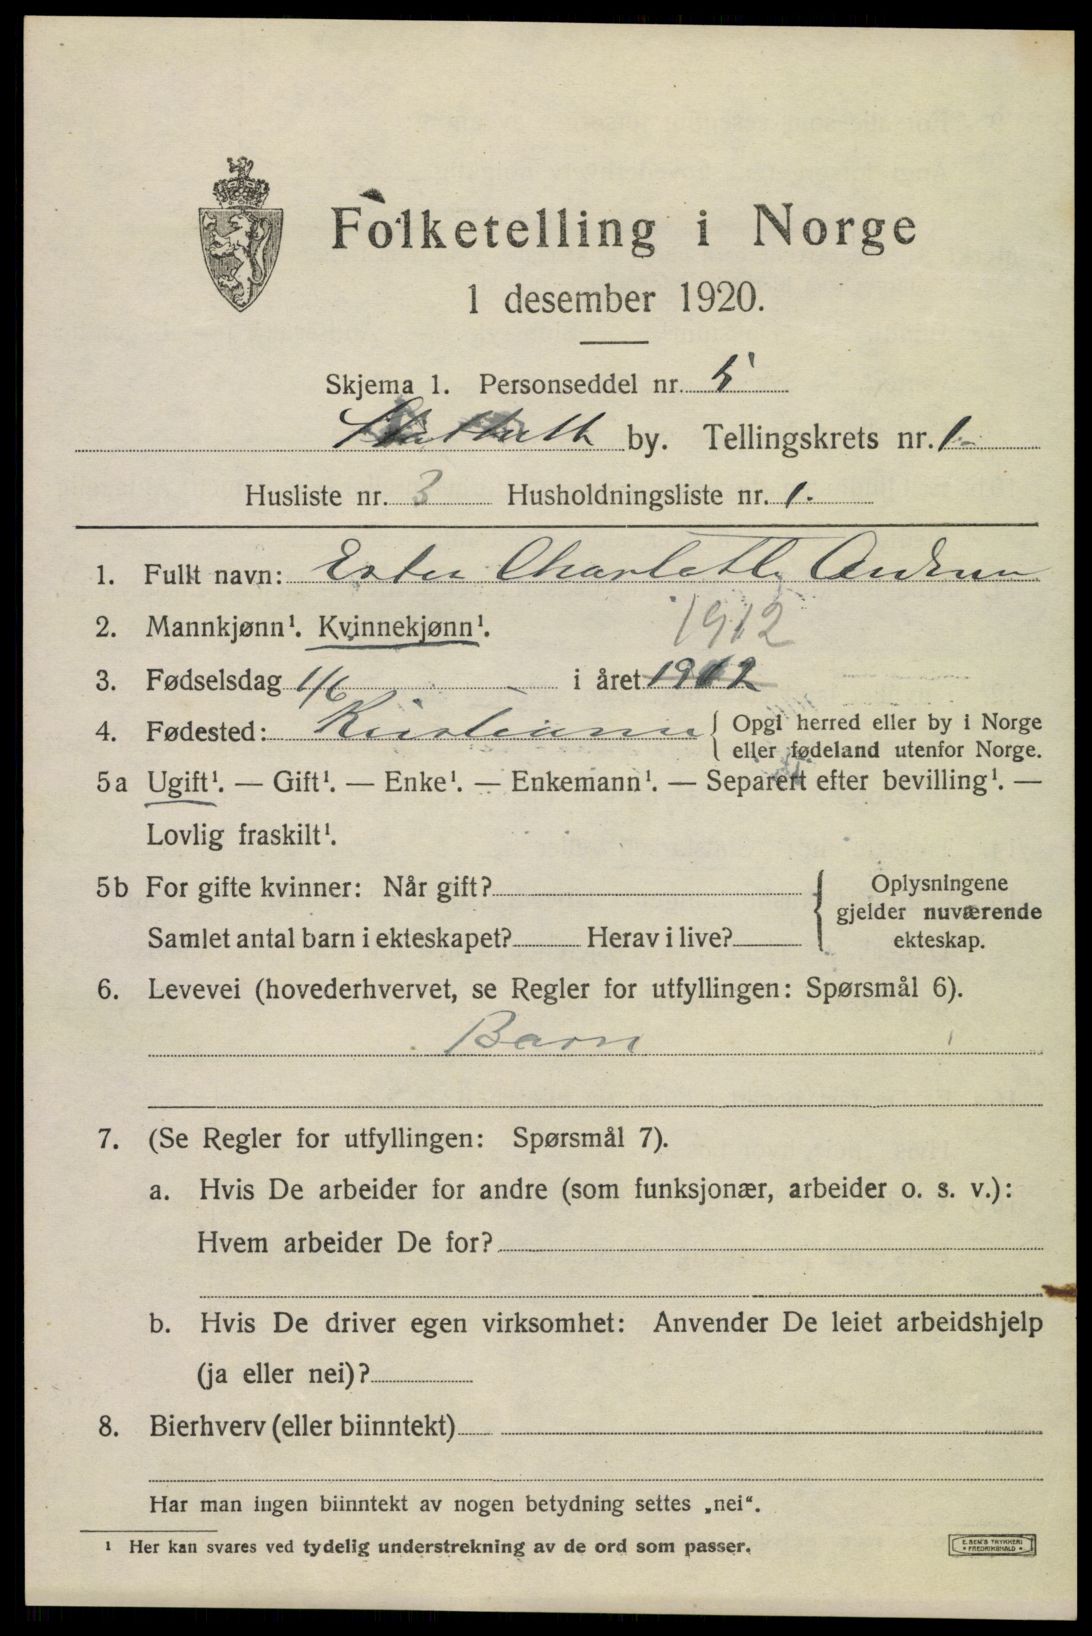 Folketelling i Norge
1 desember 1920.
Skjema 1. Personseddel nr. 5
by. Tellingskrets nr. 1.
Husliste nr. 3 Husholdningsliste nr. 1.
1. Fullt navn: Ester Charlotte
1912
2. Mannkjønn¹. Kvinnekjønn¹.
3. Fødselsdag 1/6 i året 1912
4. Fødested: Kristiania { Opgi herred eller by i Norge
eller fødeland utenfor Norge.
5a Ugift¹. — Gift¹. — Enke¹. — Enkemann¹. — Separert efter bevilling¹. —
Lovlig fraskilt¹.
5b For gifte kvinner: Når gift? { Oplysningene
gjelder nuværende
Samlet antal barn i ekteskapet? Herav i live? ekteskap.
6. Levevei (hovederhvervet, se Regler for utfyllingen: Spørsmål 6).
Barn
7. (Se Regler for utfyllingen: Spørsmål 7).
a. Hvis De arbeider for andre (som funksjonær, arbeider o. s. v.):
Hvem arbeider De for?
b. Hvis De driver egen virksomhet: Anvender De leiet arbeidshjelp
(ja eller nei)?
8. Bierhverv (eller biinntekt)
Har man ingen biinntekt av nogen betydning settes „nei“.
¹ Her kan svares ved tydelig understrekning av de ord som passer.
E. SEM'S TRYKKERI
• FREDRIKSHALD •